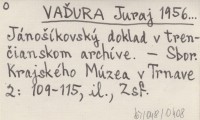 o
VAĎURA Juraj 1956...
Jánošíkovský doklad v tren-
čianskom archíve. — Sbor.
Krajského Múzea v Trnave
2: 109-115, il., Zsf.